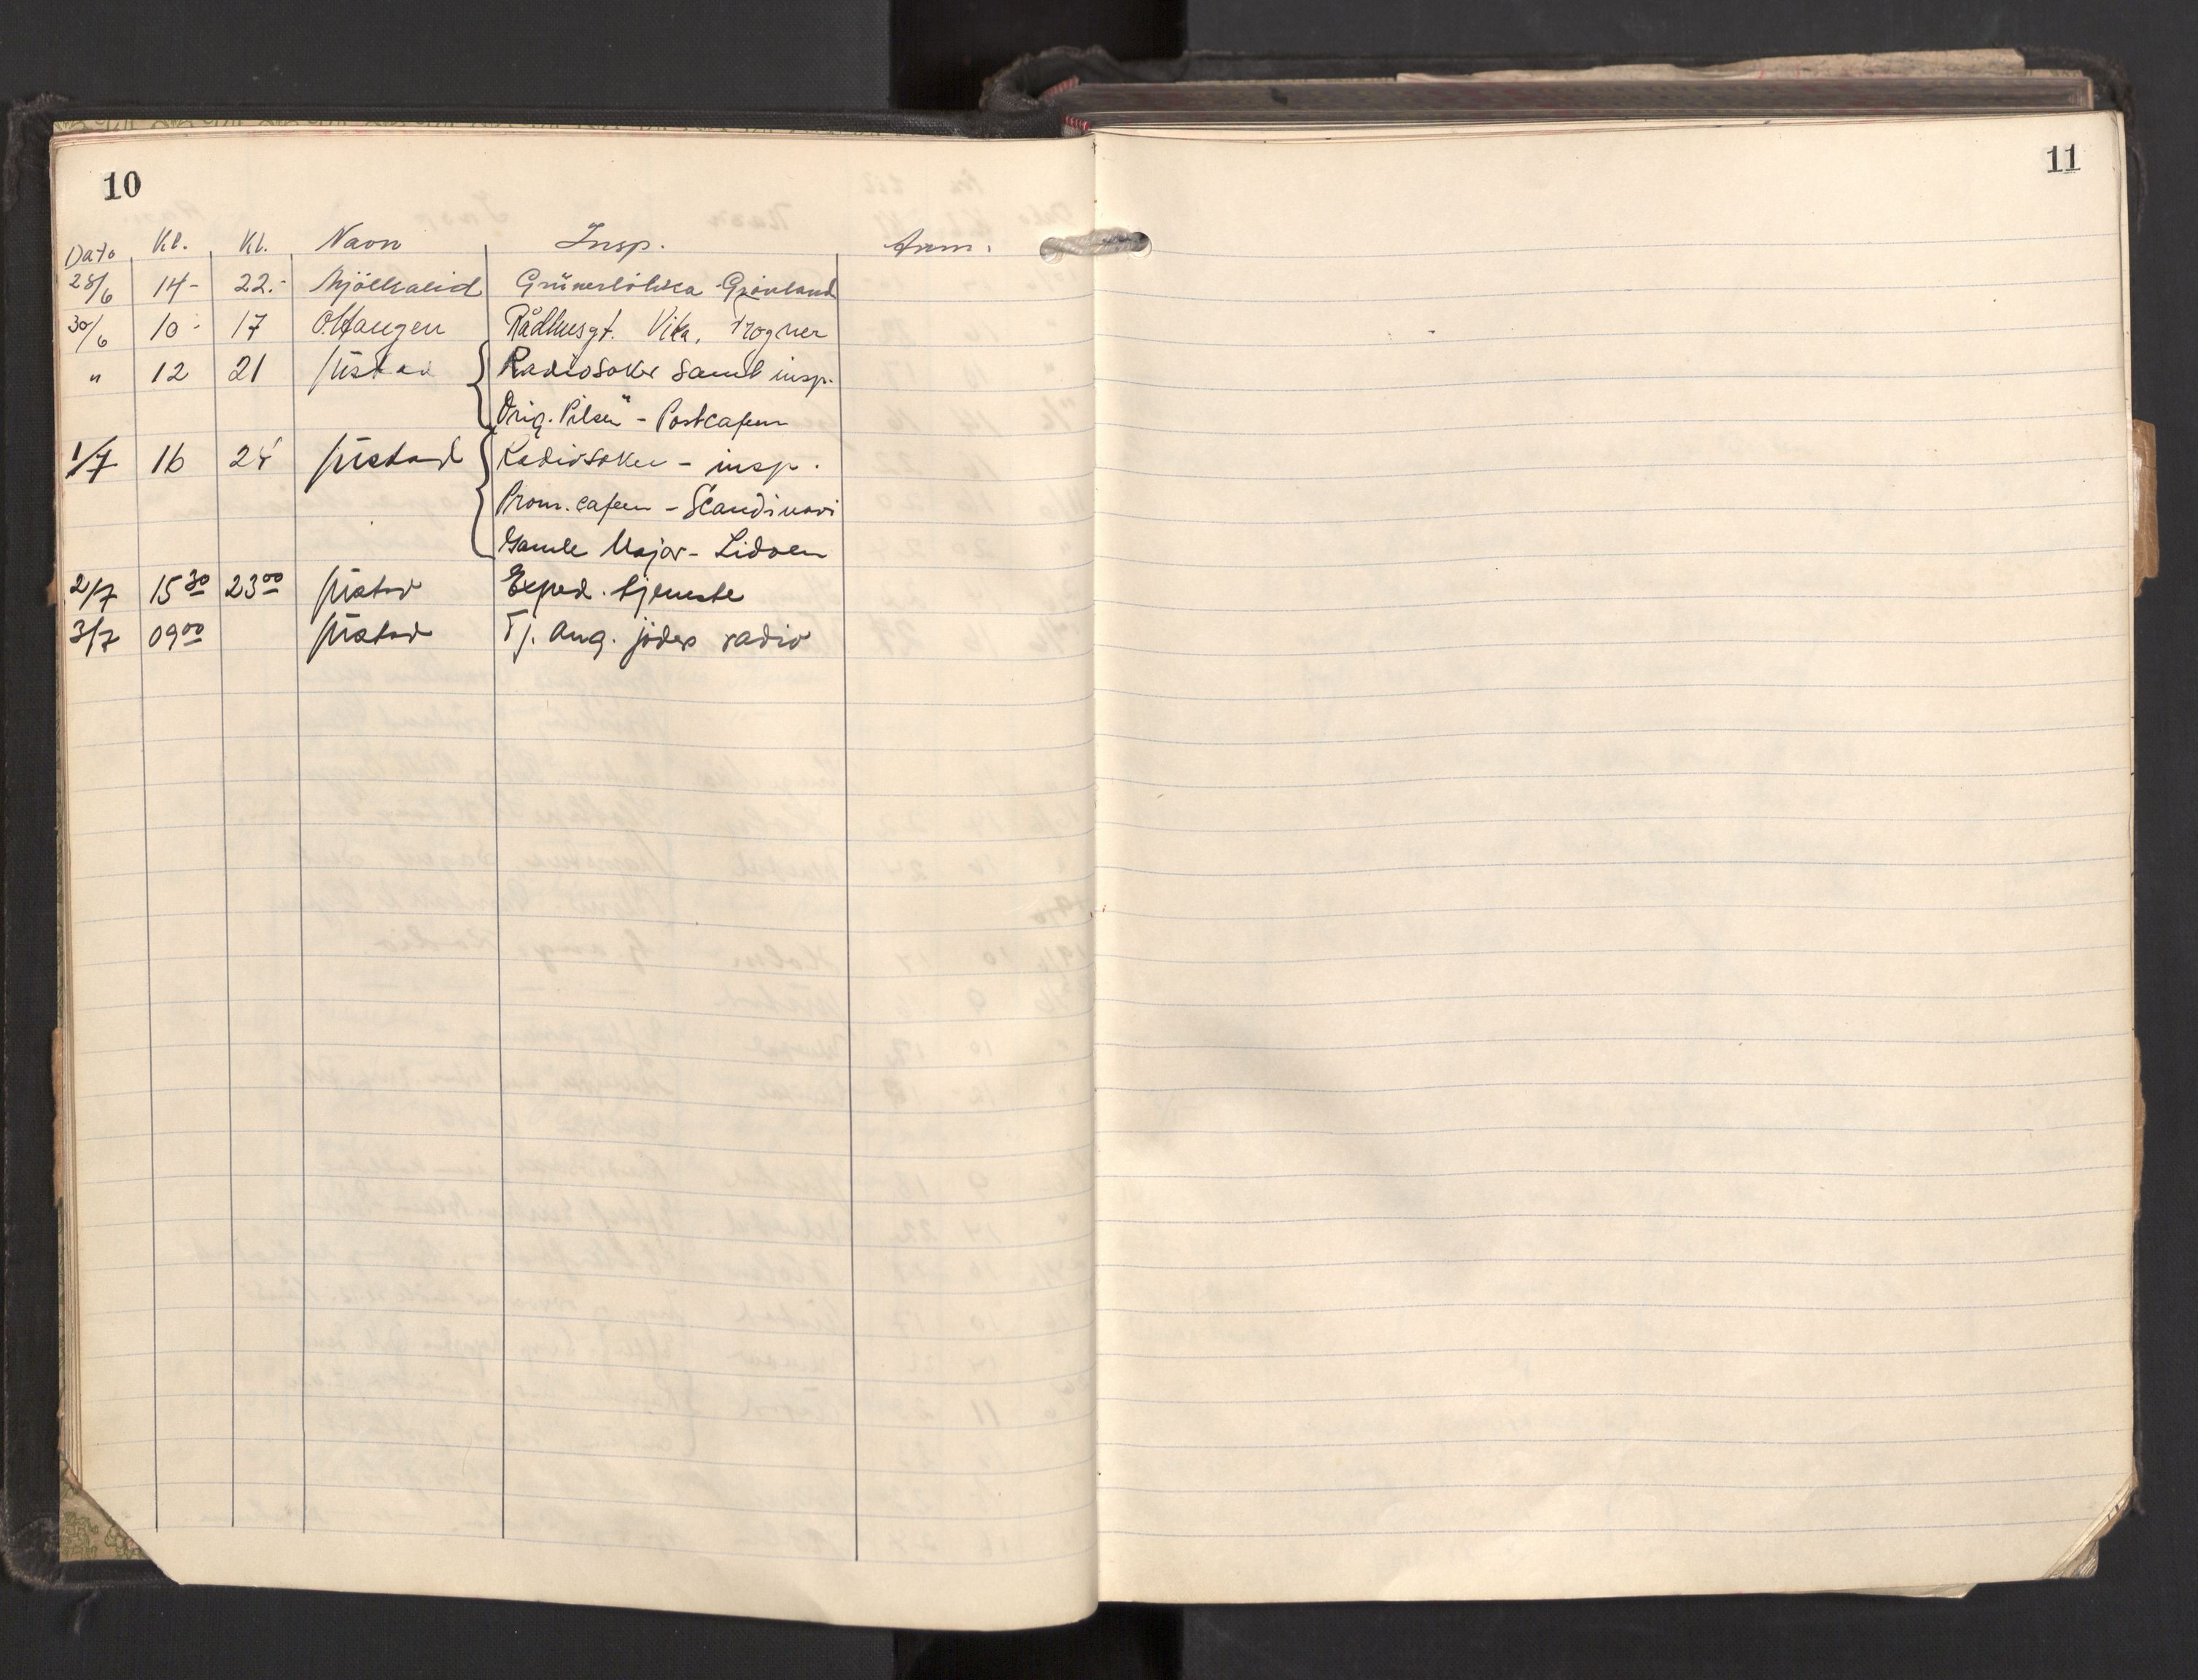 10
11
Dato Kl. Kl. Navn Insp. Anm.
28/6 14- 22.- Mjölhalid Grünerlökka Grönland
30/6 10- 17 O. Haugen Rådhusgt. Vika, Frogner
" 12 21 Radiosaker samt insp.
Orig. Pilsen" - Postcafeen
1/7 16 24 Radiosaker - insp.
Prom. cafeen - Scandinavi
Gamle Major - Lidoen
2/7 15 30 23 00 Exped. tjeneste
3/7 09 00 Tj. ang. jöders radio